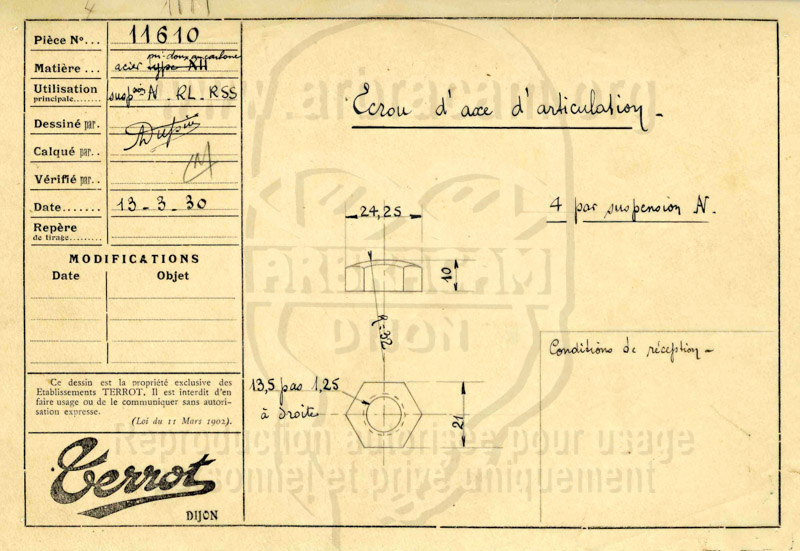 Pièce No... 11610
mi-doux au carbone
Matière... acier type AH
Utilisation
principale........ suspons N - RL - RSS
Dessiné par. Dupin
Calqué par..
Vérifié par..
Date....... 13 - 3 - 30
Repère
de tirage.........
MODIFICATIONS
Date Objet
Ce dessin est la propriété exclusive des
Etablissements TERROT. Il est interdit d'en
faire usage ou de le communiquer sans autori-
sation expresse.
(Loi du 11 Mars 1902).
Terrot
DIJON
Ecrou d'axe d'articulation -
4 par suspension N.
24,25
10
R=32
13,5 pas 1,25
à droite
21
Conditions de réception -
www.arbracam.org
ARBRACAM
DIJON
Reproduction autorisée pour usage
personnel et privé uniquement